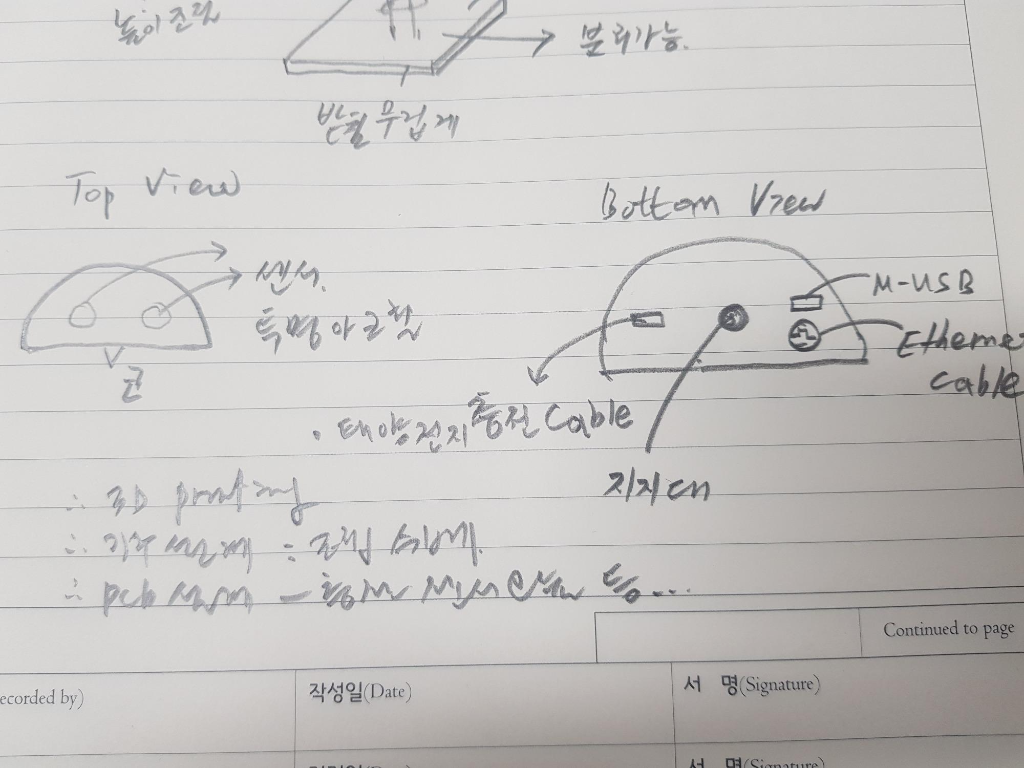 높이 조절
분리가능.
받침 무겁게
Top View
Bottom View
센서.
투명아크릴
코
M-USB
Ethernet
Cable
· 태양전지 충전 Cable
지지대
∴ 3D printing
∴ 기구 설계 : 조립 쉬게.
∴ pcb 설계 – 센서 등...
Continued to page
ecorded by)
작성일(Date)
서 명(Signature)
서 명(Signature)